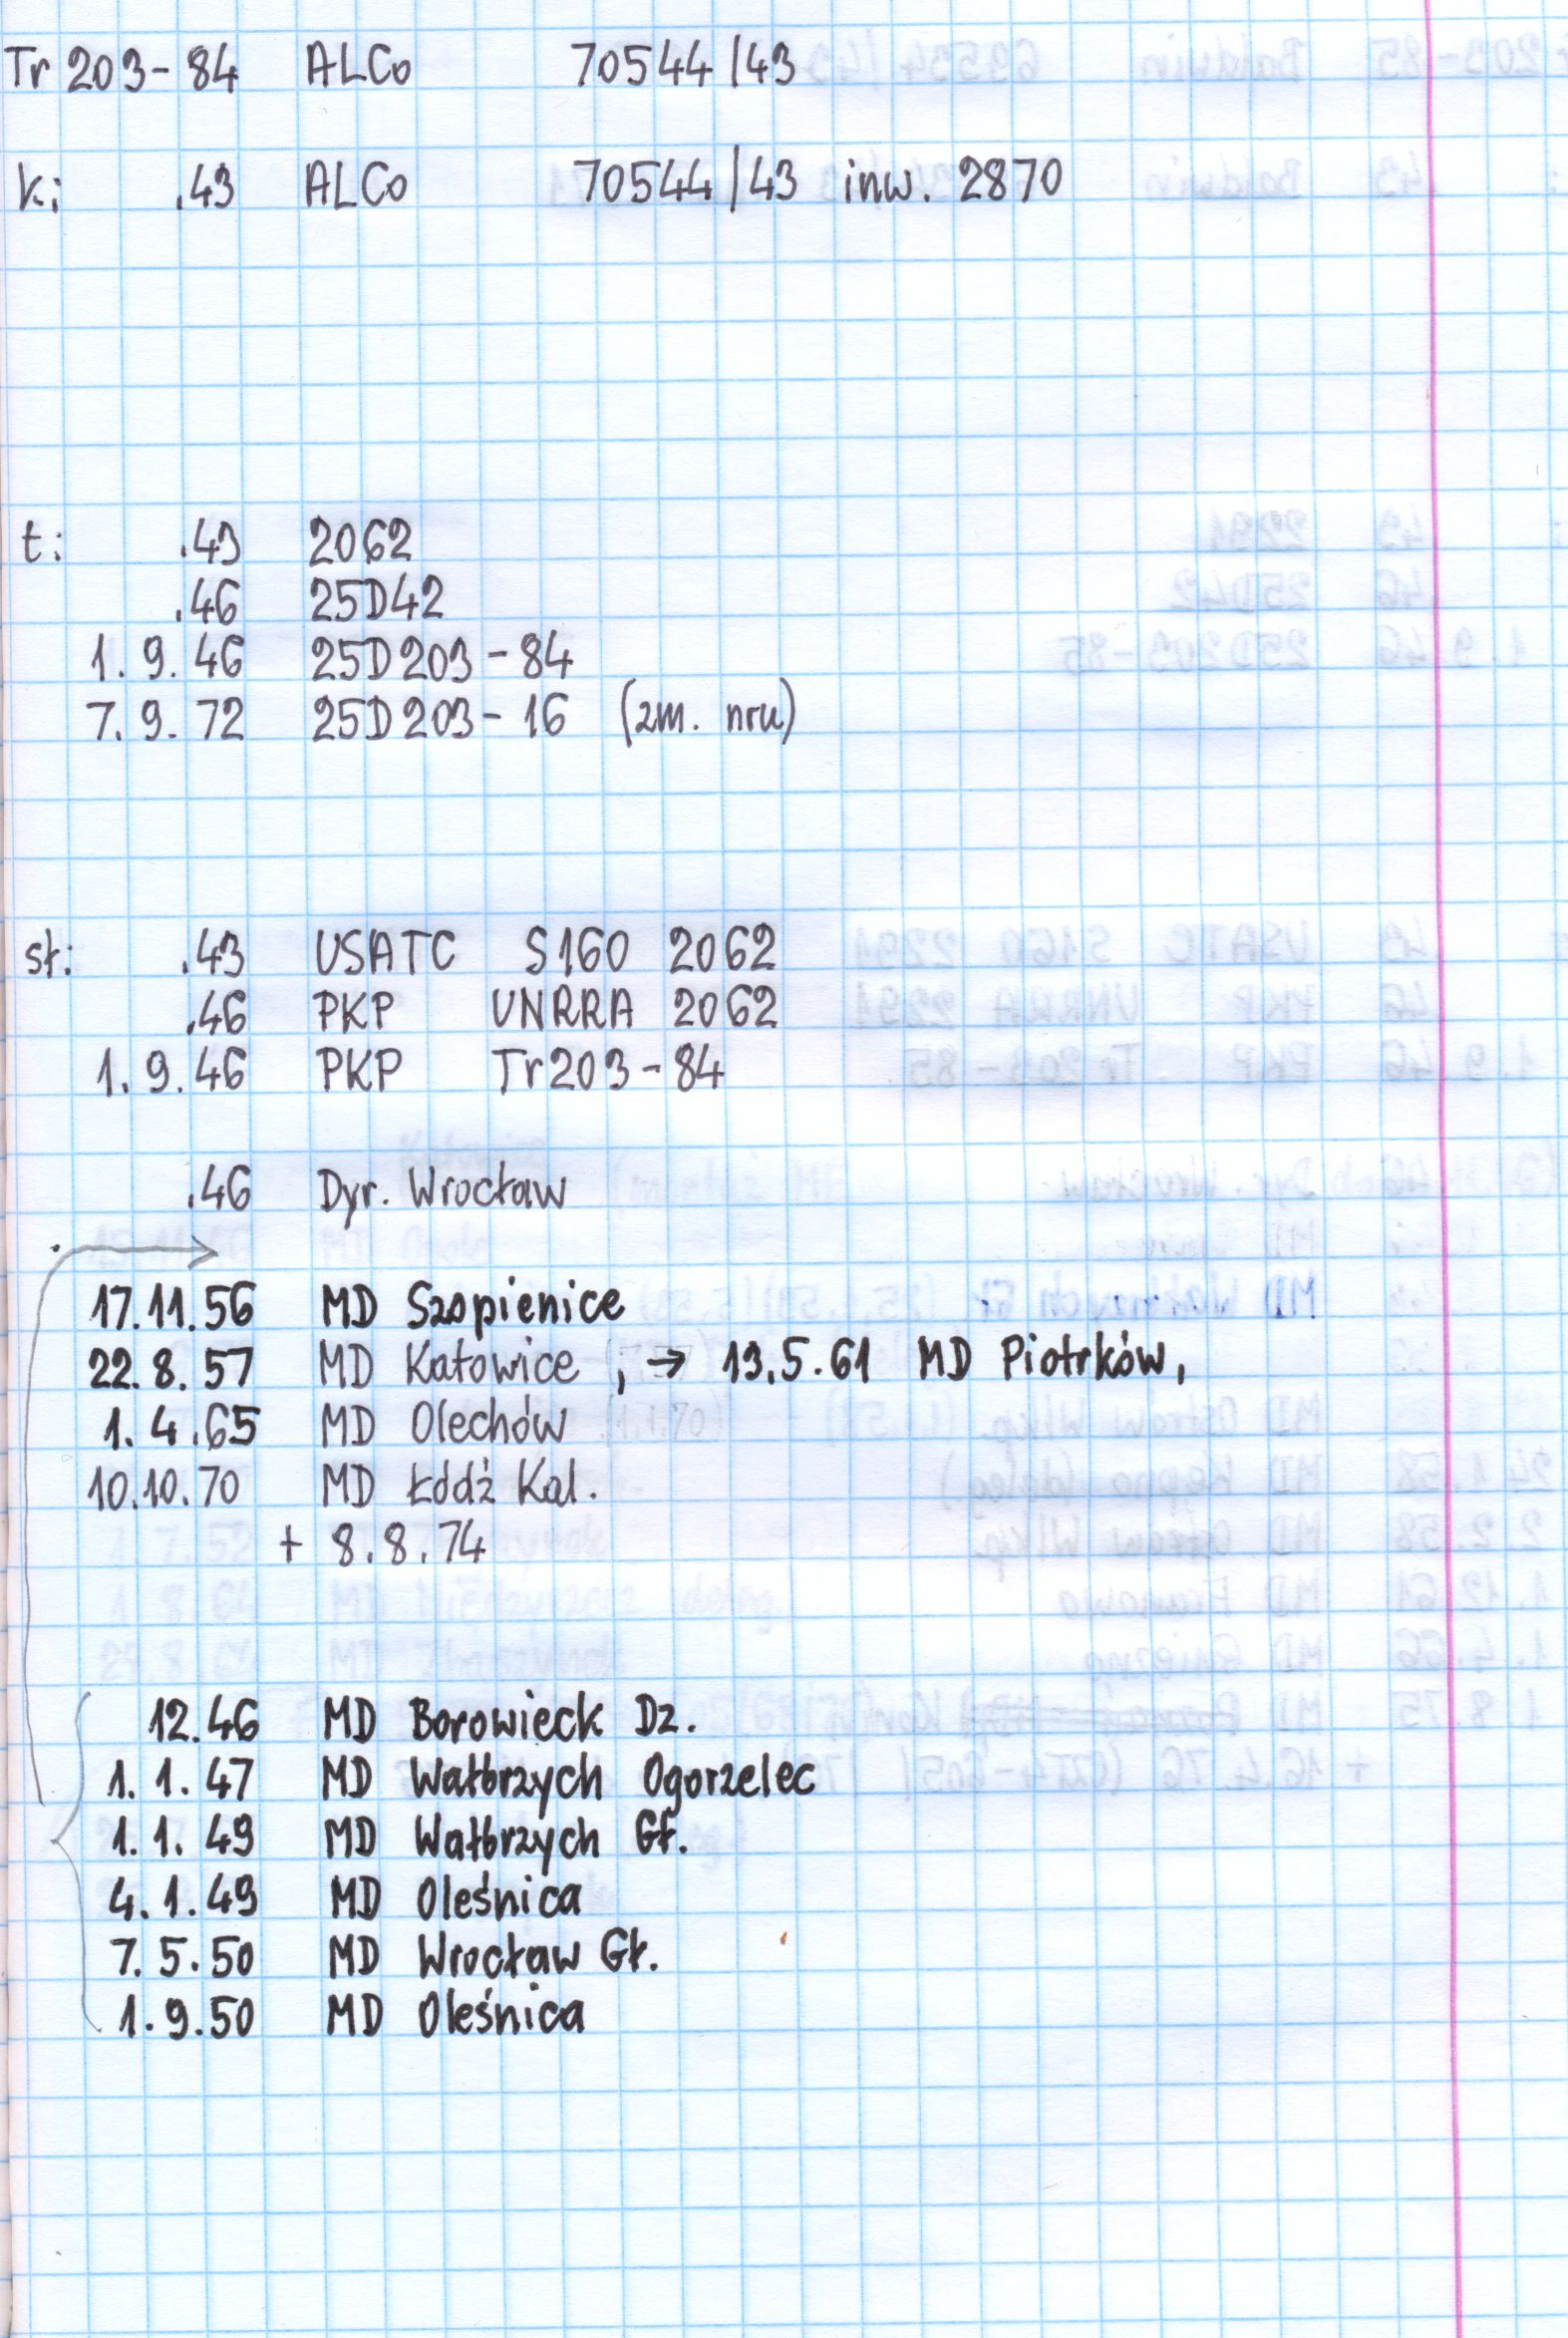 Tr 203-84 ALCo 70544/43
k: .43 ALCo 70544/43 inw. 2870
t: .43 2062
.46 25D42
1.9.46 25D203-84
7.9.72 25D203-16 (zm. nru)
sł: .43 USATC S160 2062
.46 PKP UNRRA 2062
1.9.46 PKP Tr203-84
.46 Dyr. Wrocław
17.11.56 MD Szopienice
22.8.57 MD Katowice, → 13.5.61 MD Piotrków,
1.4.65 MD Olechów
10.10.70 MD Łódź Kal.
+ 8.8.74
12.46 MD Borowieck Dz.
1.1.47 MD Wałbrzych Ogorzelec
1.1.49 MD Wałbrzych Gł.
4.1.49 MD Oleśnica
7.5.50 MD Wrocław Gł.
1.9.50 MD Oleśnica